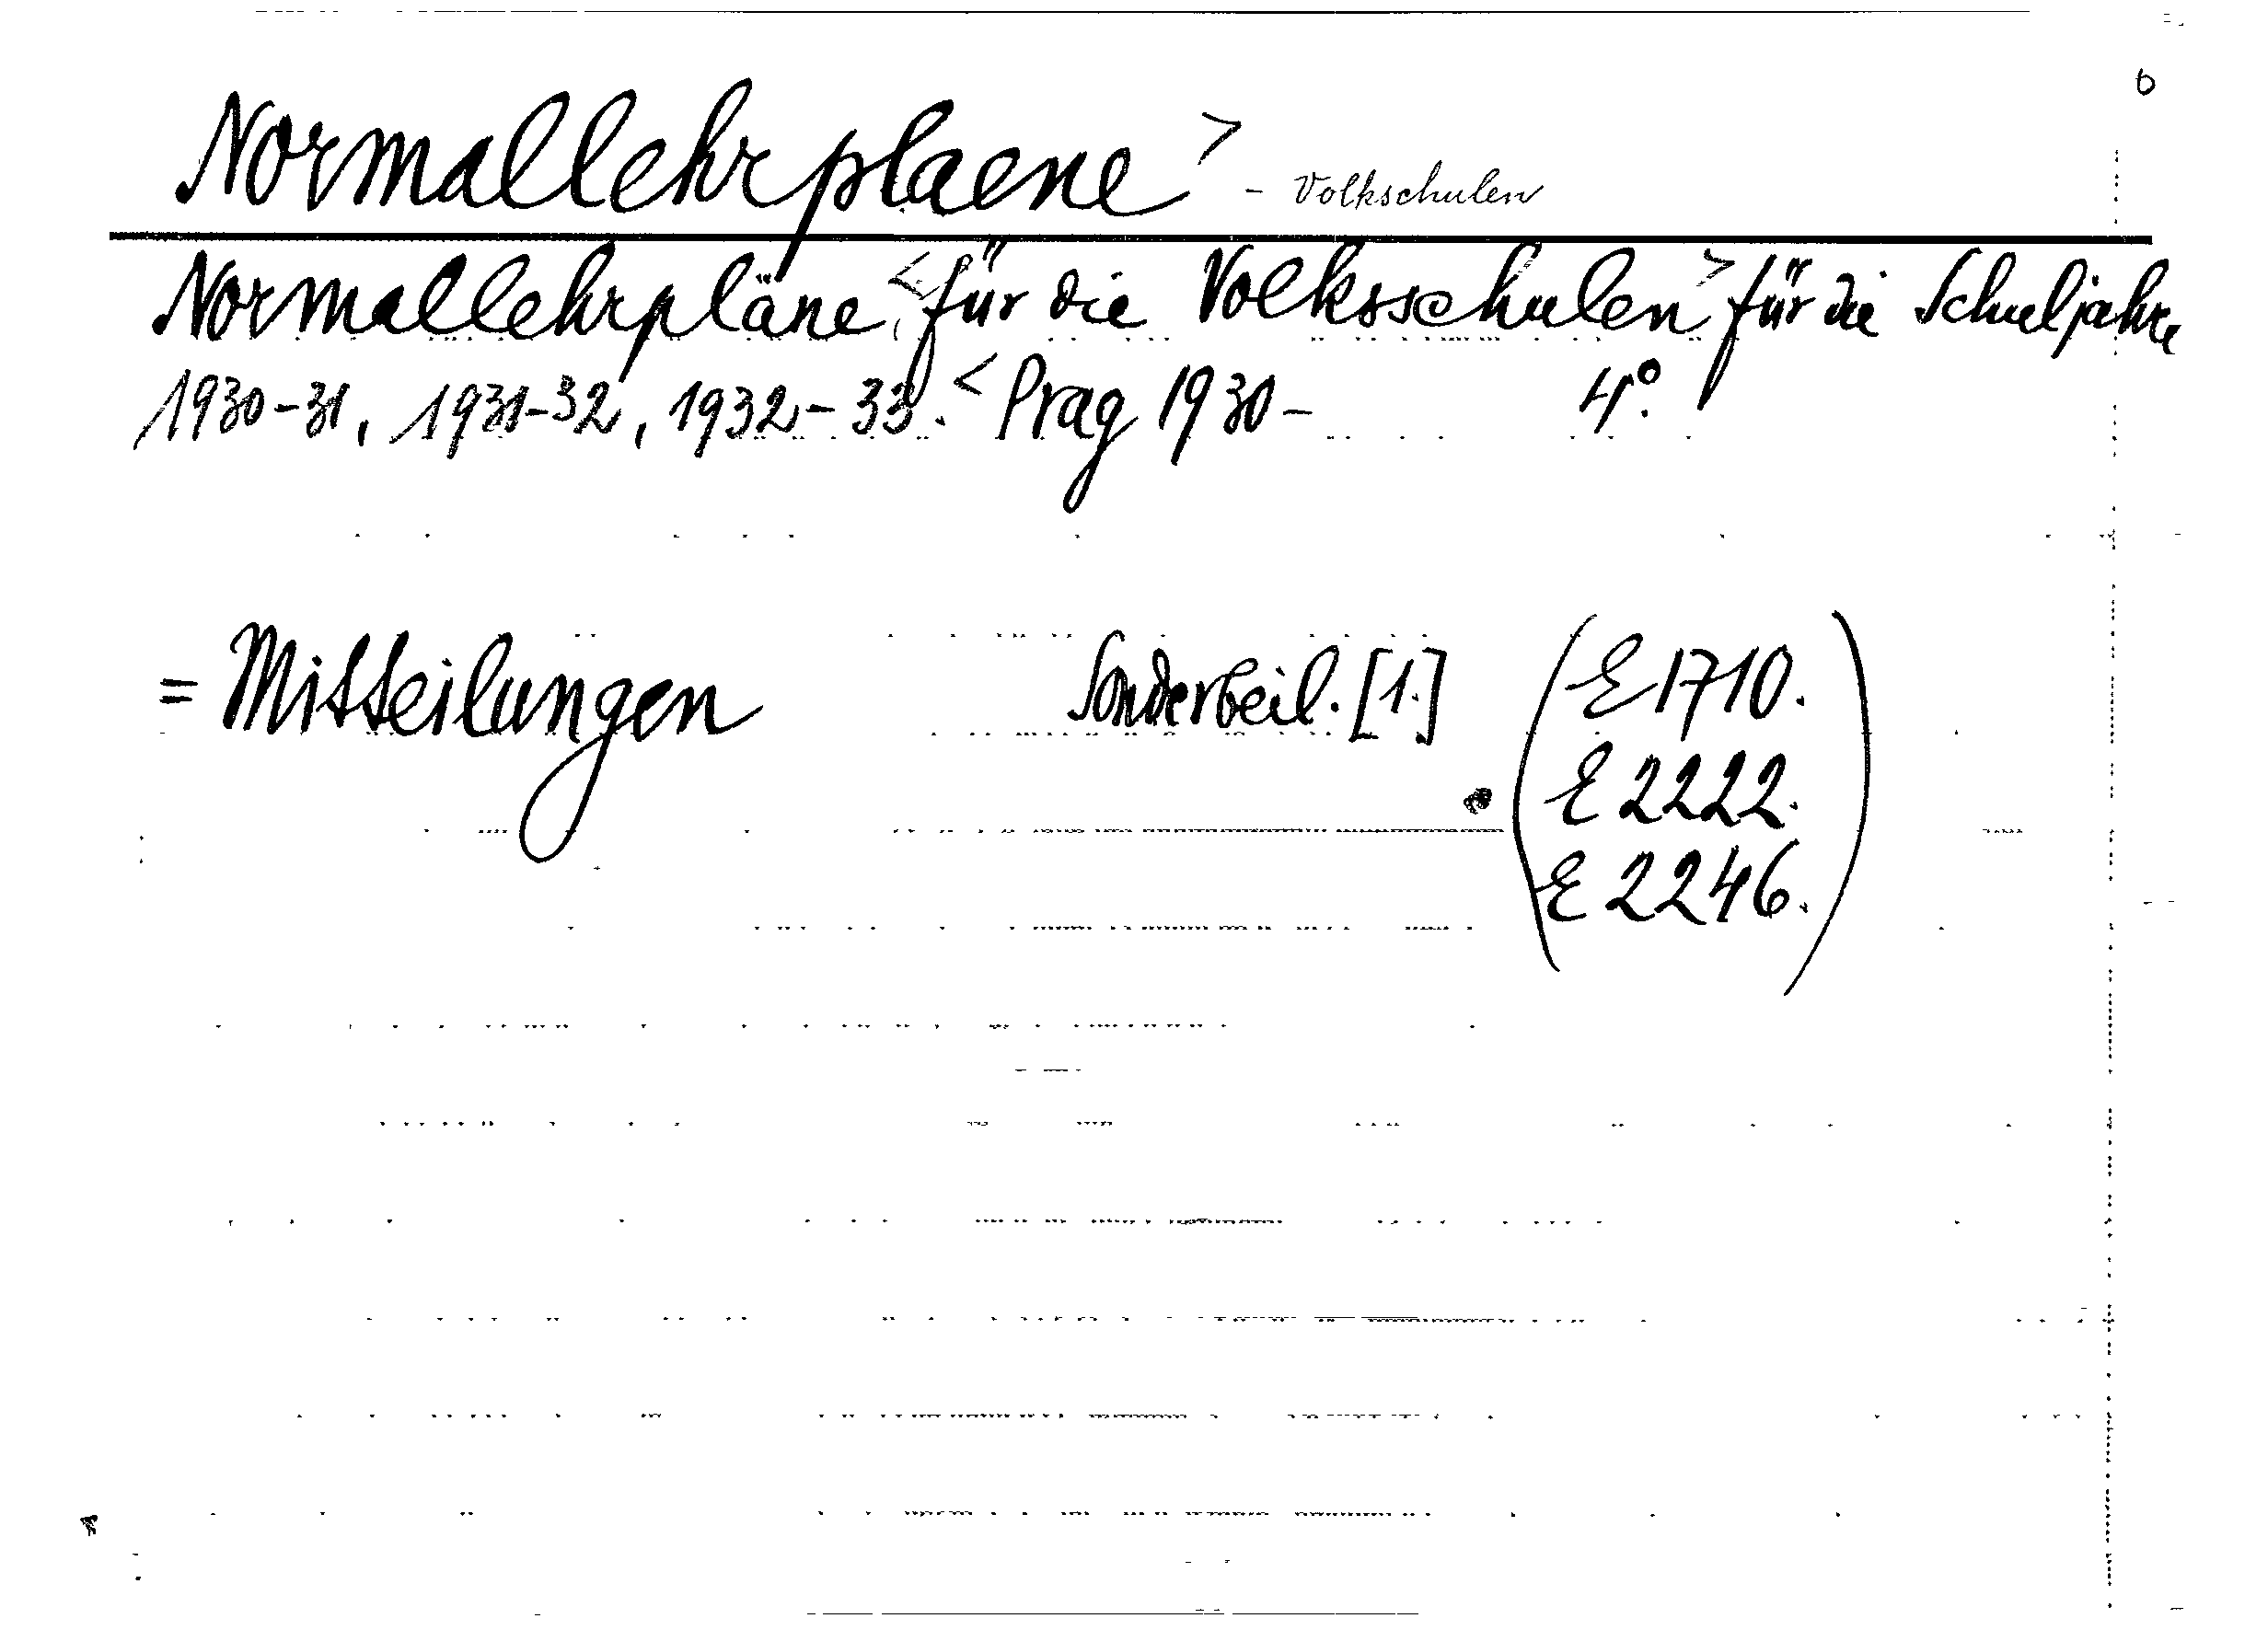 6
Normallehrplaene > - Volkschulen
Normallehrpläne < für die Volksschulen > für die Schuljahre
1930-31, 1931-32, 1932-33. < Prag 1930- 4°.
= Mitteilungen Sonderbeil. [1.] (E 1710.
E 2222.
E 2246.)